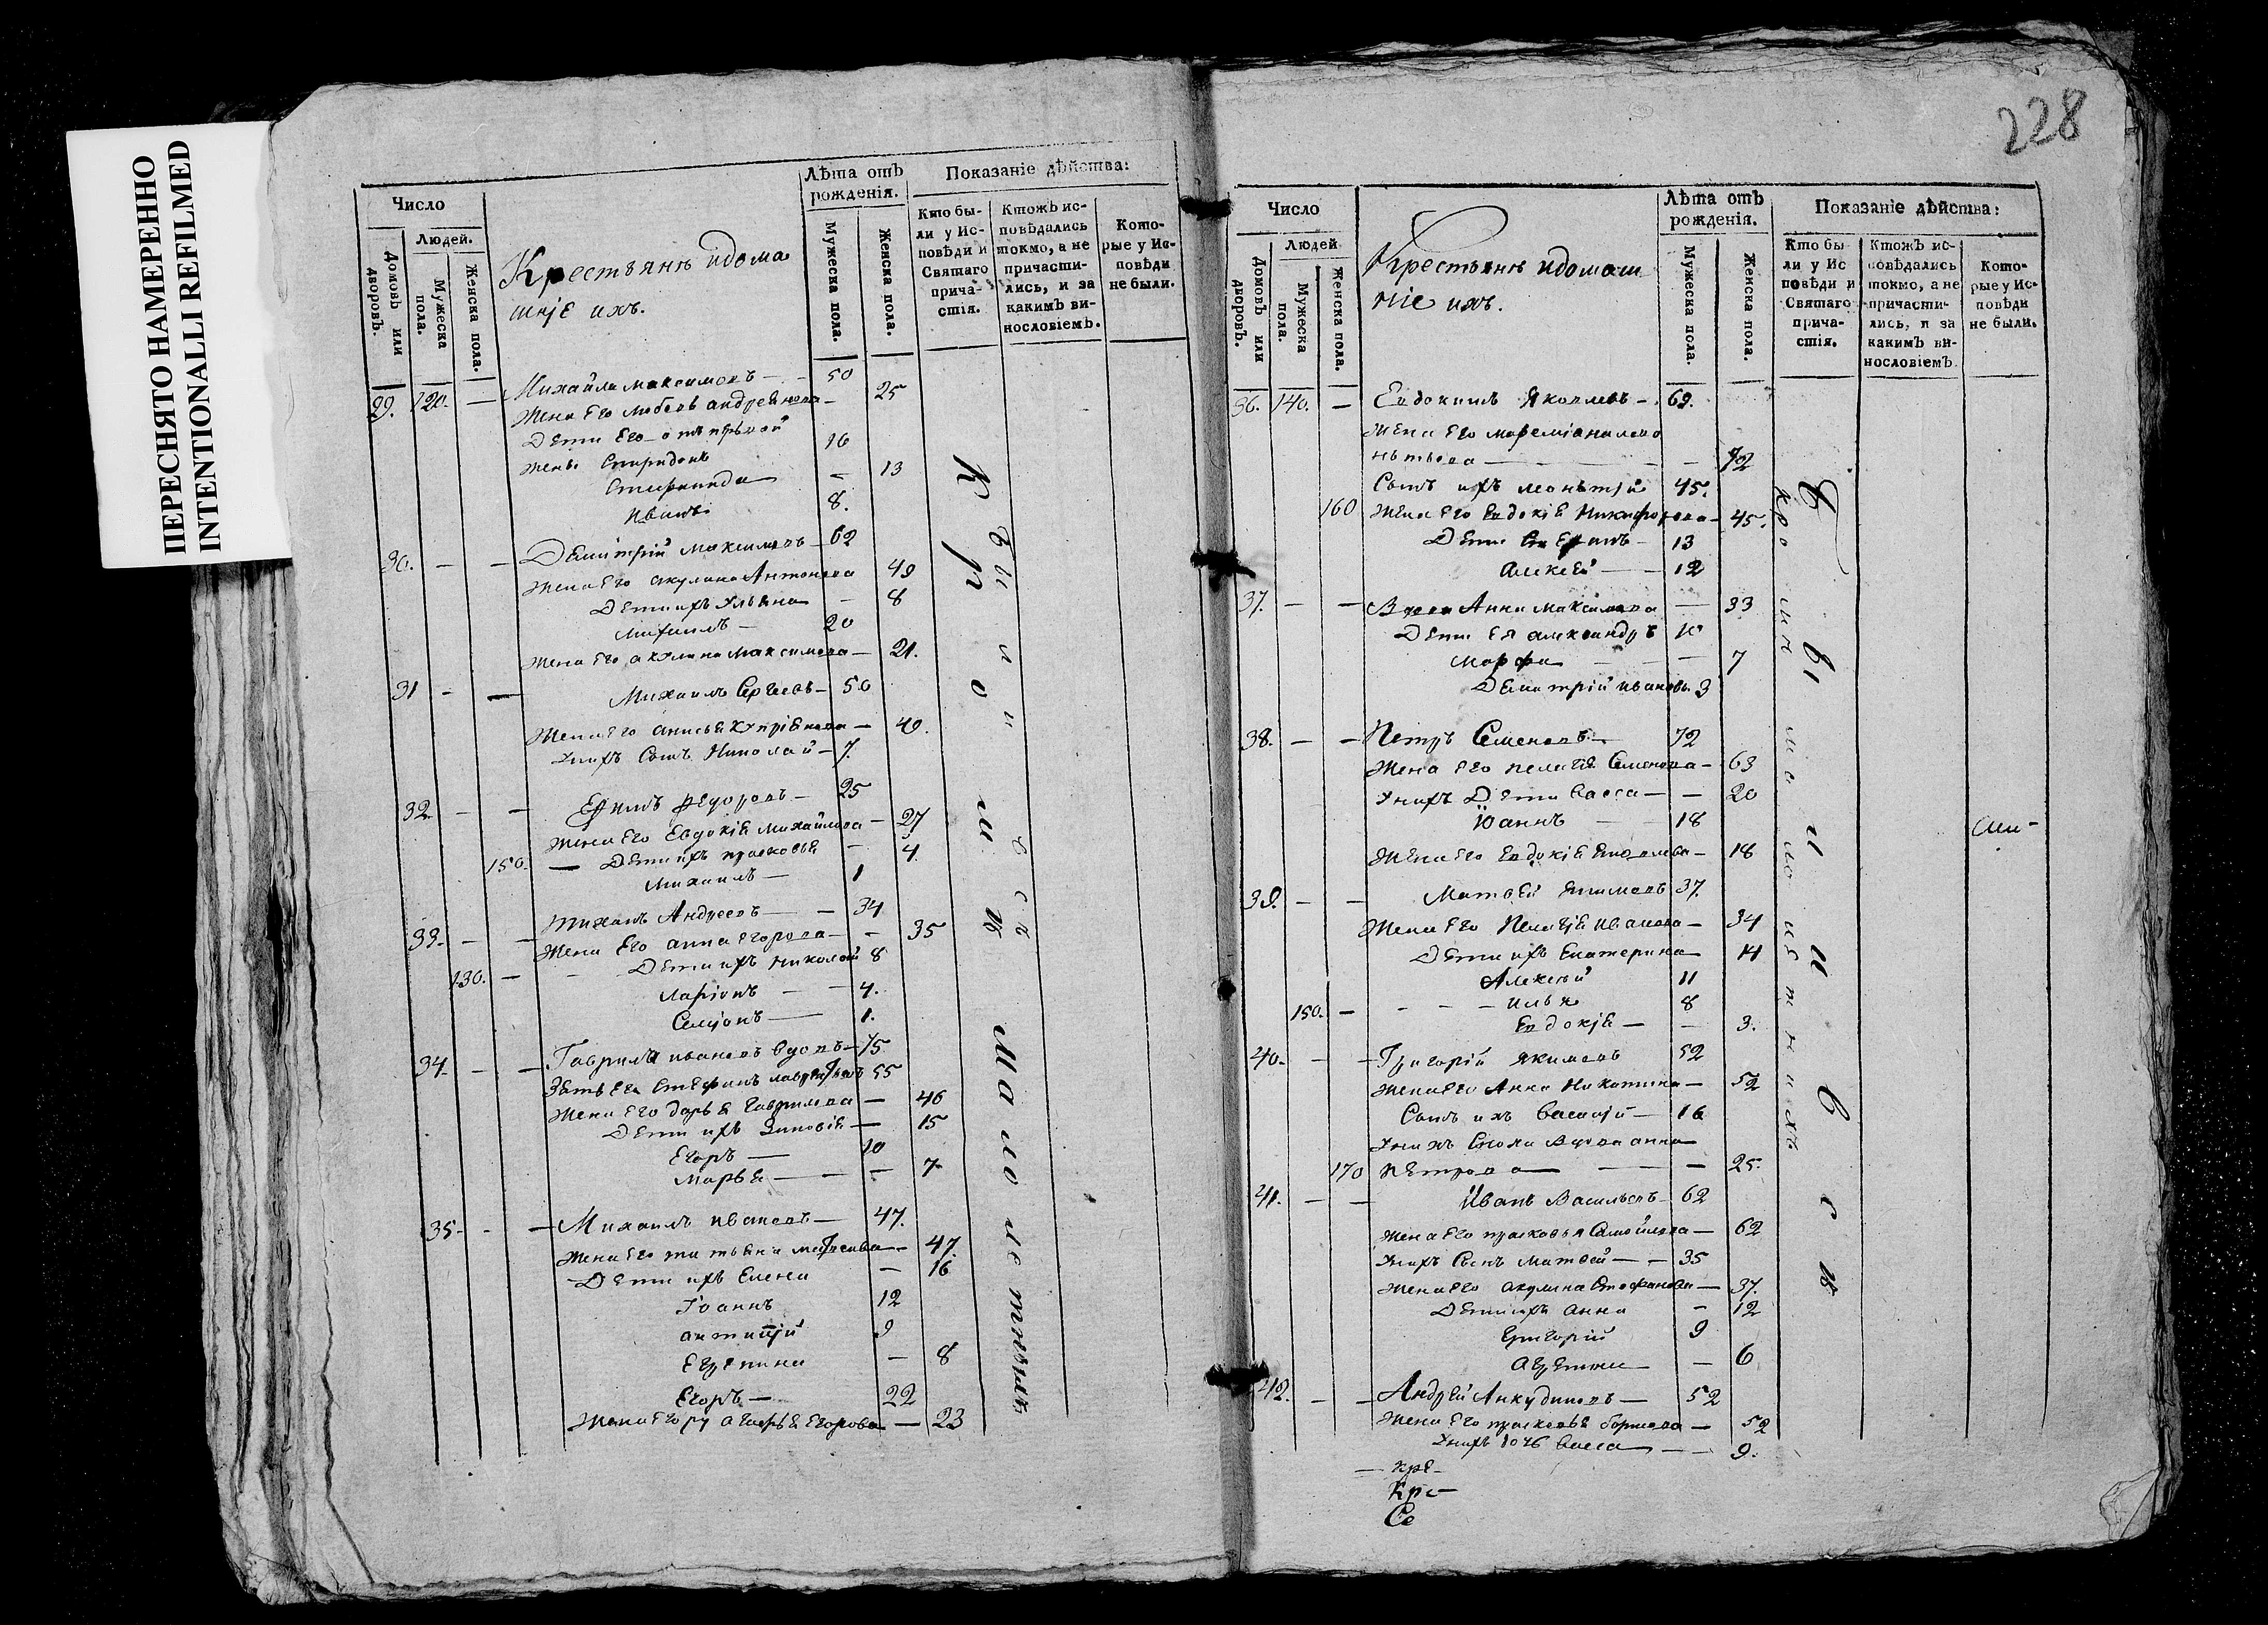 ПЕРЕСНЯТО НАМЕРЕННО
INTENTIONALLI REFILMED
Число
Людей.
Домовъ или дворовъ.
Мужеска пола.
Женска пола.
Крестьянѣ идома
шніе ихъ.
Лѣта отъ рожденія.
Мужеска пола.
Женска пола.
Показаніе дѣйства:
Кто бы-
ли у Ис-
повѣди и
Святаго
прича-
стія.
Ктожъ ис-
повѣдались
токмо, а не
причасти-
лись, и за
какимъ ви-
нословіемъ.
Кото-
рые у Ис-
повѣди
не были.
29. 120. — Михайла Максимовъ — 50
Жена Его любовь андреянова — 25
Дети Его отпервой
жены Спиридонъ 16
— 13
Иванъ 8.
30. — — Димитрій Максимовъ — 62
Жена его акулина Антонова 49
Дети ихъ Ульяна — 8
Михаилъ — 20
Жена Его акулина Максимова — 21.
31 — — Михаилъ Сергеевъ — 50
Жена Его анисья Купріянова — 40.
Унихъ Сынъ Николай — 7.
32. — — Ефимъ Федоровъ — 25
Жена Его Евдокія Михайлова — 27
150. — Дети ихъ прасковья — 4.
Михаилъ — 1
33. — — Тихонъ Андреевъ — 34
Жена Его анна егорова — 35
130. — Дети ихъ Николай 8
Ларіонъ — 4.
Семіонъ — 1.
34. — — Гаврила ивановъ вдовъ — 75
Зять Его Стефанъ лаврентьевъ 55
Жена Его дарья Гаврилова — 46
Дети ихъ Зиновія — 15
Егоръ — 10
Марья — 7
35 — — Михаилъ ивановъ — 47.
Жена Его татьяна матвеева — 47.
Дети ихъ Елена — 16
Іоаннъ 12
антипій 9
— 8
Егоръ — 22
Егорова — 23
228
Число
Людей
Домовъ или дворовъ.
Мужеска пола.
Женска пола.
Крестьянѣ идомаш
ніе ихъ.
Лѣта отъ рожденія.
Мужеска пола.
Женска пола.
Показаніе дѣйства:
Кто бы
ли у Ис
повѣди и
Святаго
прича-
стія.
Ктожъ ис-
повѣдались
токмо, а не
причасти-
лись, и за
какимъ ви-
нословіемъ.
Кото-
рые у Ис-
повѣди
не были.
36. 140. — Евдокимъ Яковлевъ — 69.
Жена Его
— 72
Сынъ ихъ леонтій 45.
160 Жена Его Евдокія Никифорова — 45.
Дети 13
Алексей — 12
37. — — Вдова Анна Максимова — 33
Дети Ея александръ 10
Марфа — 7
Димитрій ивановъ 3
38. — — Петръ Семеновъ — 72
Жена Его пелагія Семенова — 63
Унихъ Дети васса — 20
Іоаннъ — 18
Жена Его Евдокія — 18
39. — — Матвей 37.
Жена Его Пелагія иванова — 34
Дети ихъ Екатерина 14
Алексей 11
150. — илья 8
Евдокія — 3.
40. — — Григорій Якимовъ 52
Жена Его Анна Никитина — 52
Сынъ ихъ Василій — 16
Унихъ Сноха Вдова анна
170 Петрова — 25.
41. — — Иванъ Васильевъ 62
Жена Его прасковья Самойлова — 62
Унихъ Сынъ матвей — 35
Жена Его акулина Стефанова — 37.
Дети ихъ анна — 12
Григорій 9
— 6
42. — — Андрей Анкудиновъ — 52
Жена Его прасковья борисова — 52
Унихъ дочь васса — 9.
Кре-
Кре-
Се